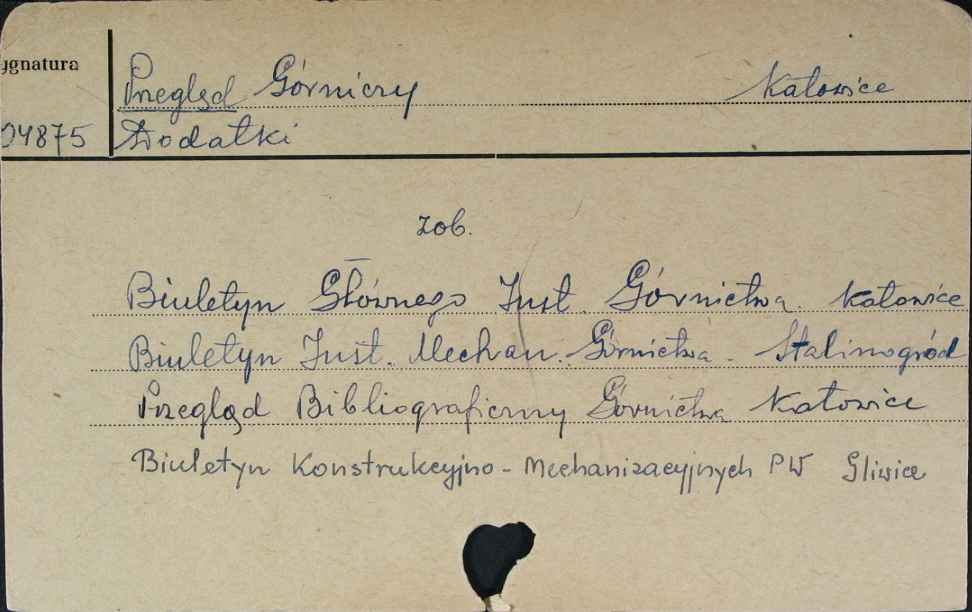 ygnatura
Przegląd Górniczy Katowice
04875 Dodatki
zob.
Biuletyn Głównego Inst. Górnictwa. Katowice
Biuletyn Inst. Mechan. Górnictwa. Stalinogród
Przegląd Bibliograficzny Górnictwa Katowice
Biuletyn Konstrukcyjno - Mechanizacyjnych PW Gliwice